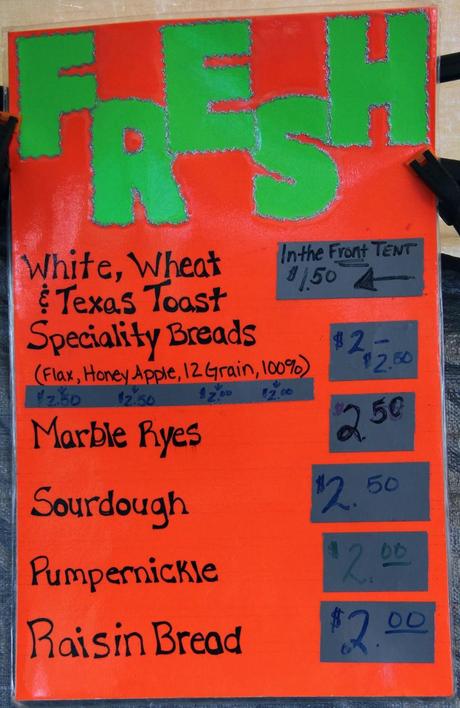 FRESH
White, Wheat
& Texas Toast
In the Front TENT
$1.50
Speciality Breads
$2 -
$2.50
(Flax, Honey Apple, 12 Grain, 100%)
$2.50 $2.50 $2.00 $2.00
Marble Ryes $2.50
Sourdough $2.50
Pumpernickle $2.00
Raisin Bread $2.00